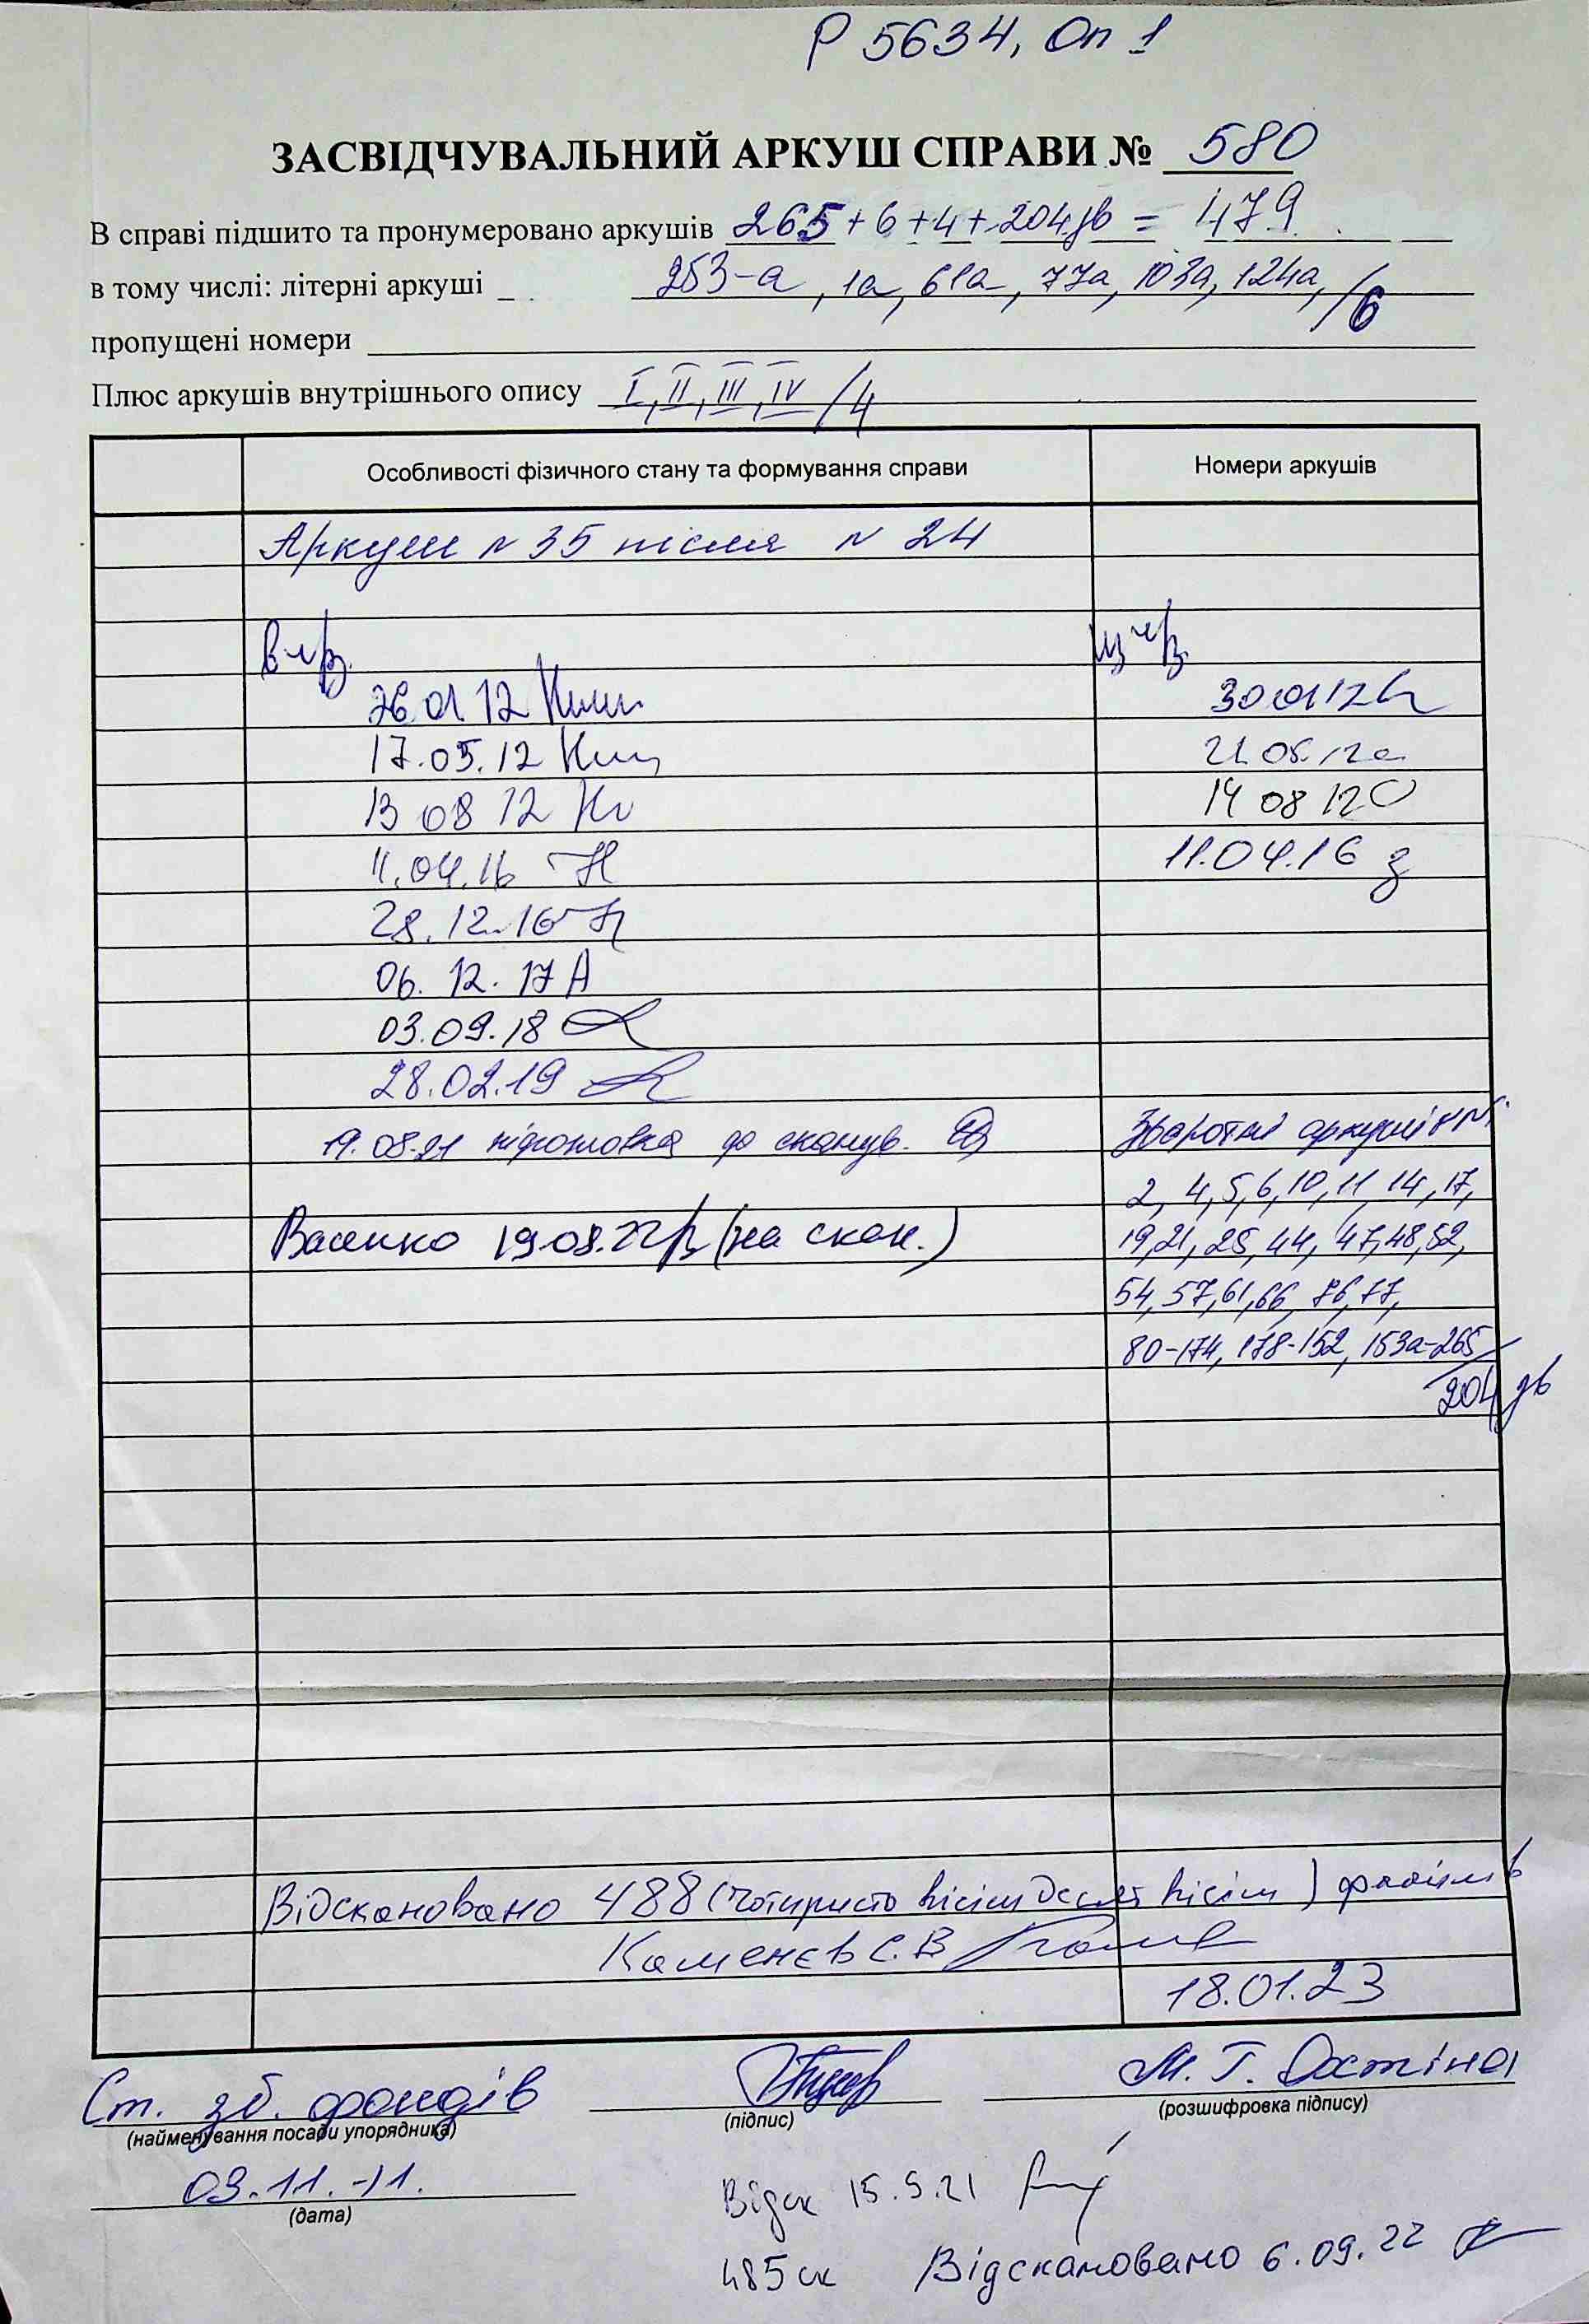 Р 5634, Оп 1
ЗАСВІДЧУВАЛЬНИЙ АРКУШ СПРАВИ № 580
В справі підшито та пронумеровано аркушів 265+6+4+204зв = 479
в тому числі: літерні аркуші 253-а, 1а, 61а, 77а, 103а, 124а, /6
пропущені номери
Плюс аркушів внутрішнього опису I, II, III, IV /4
Особливості фізичного стану та формування справи Номери аркушів
Аркуш № 35 після № 24
26 01 12 30 01 12
17.05.12 21 05.12
13 08 12 14 08 12
11.04.16 11.04.16
28.12.16
06.12.17
03.09.18
28.02.19
19.08.21 підготовка до сканув. Зворотні аркуші
2, 4, 5, 6, 10, 11, 14, 17,
19.08.22р (на скан.) 19, 21, 25, 44, 47, 48, 52,
54, 57, 61, 66, 76, 77,
80-174, 178-152, 153а-265
204 зв
Відскановано 488 (чотириста вісімдесят вісім) файлів
Каменєв С.В
18.01.23
Ст. зб. фондів М. Г.
(найменування посади упорядника) (підпис) (розшифровка підпису)
03.11.-11.
(дата)
Відск 15.9.21
485 ск Відскановано 6.09.22